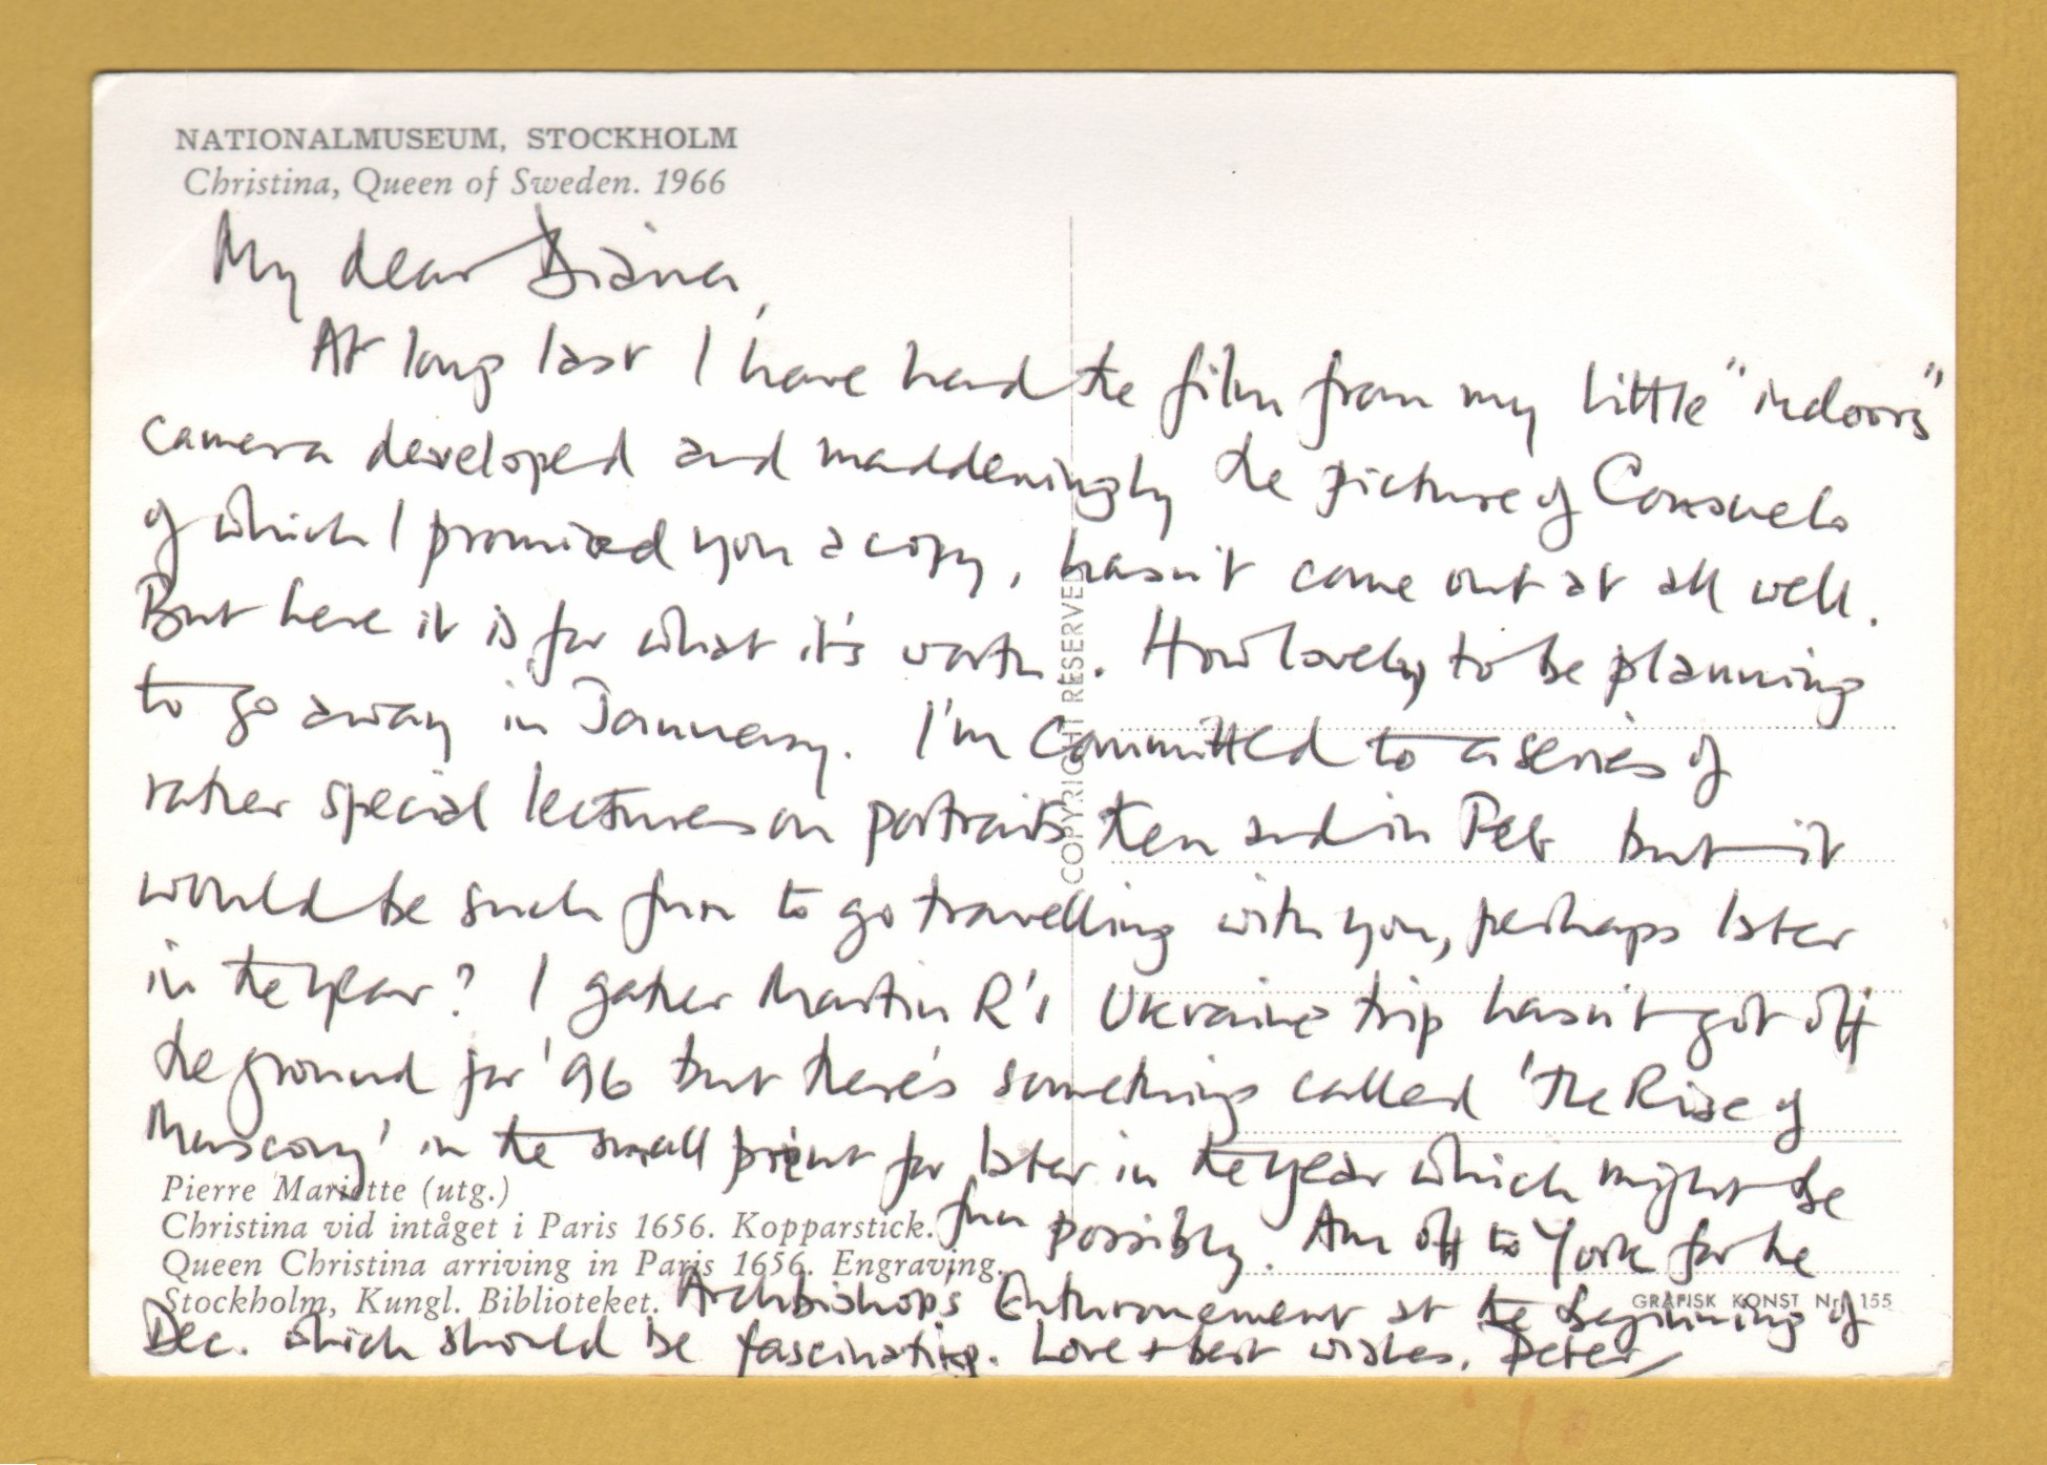 NATIONALMUSEUM, STOCKHOLM
Christina, Queen of Sweden. 1966
My dear Diana,
At long last I have had the film from my little "indoors"
camera developed and maddeningly the picture of Consuelo
of which I promised you a copy, hasn't come out at all well.
But here it is for what it's worth. How lovely to be planning
to go away in January. I'm committed to a series of
rather special lectures on portraits then and in Feb but it
would be such fun to go travelling with you, perhaps later
in the year? I gather Martin R's Ukraine trip hasn't got off
the ground for '96 but there's something called 'The Rise of
Muscovy' in the small print for later in the year which might be
fun possibly. Am off to York for the
Archbishop's Enthronement at the beginning of
Dec. which should be fascinating. Love + best wishes, Peter
COPYRIGHT RESERVED
Pierre Mariette (utg.)
Christina vid intåget i Paris 1656. Kopparstick.
Queen Christina arriving in Paris 1656. Engraving.
Stockholm, Kungl. Biblioteket.
GRAFISK KONST Nr. 155